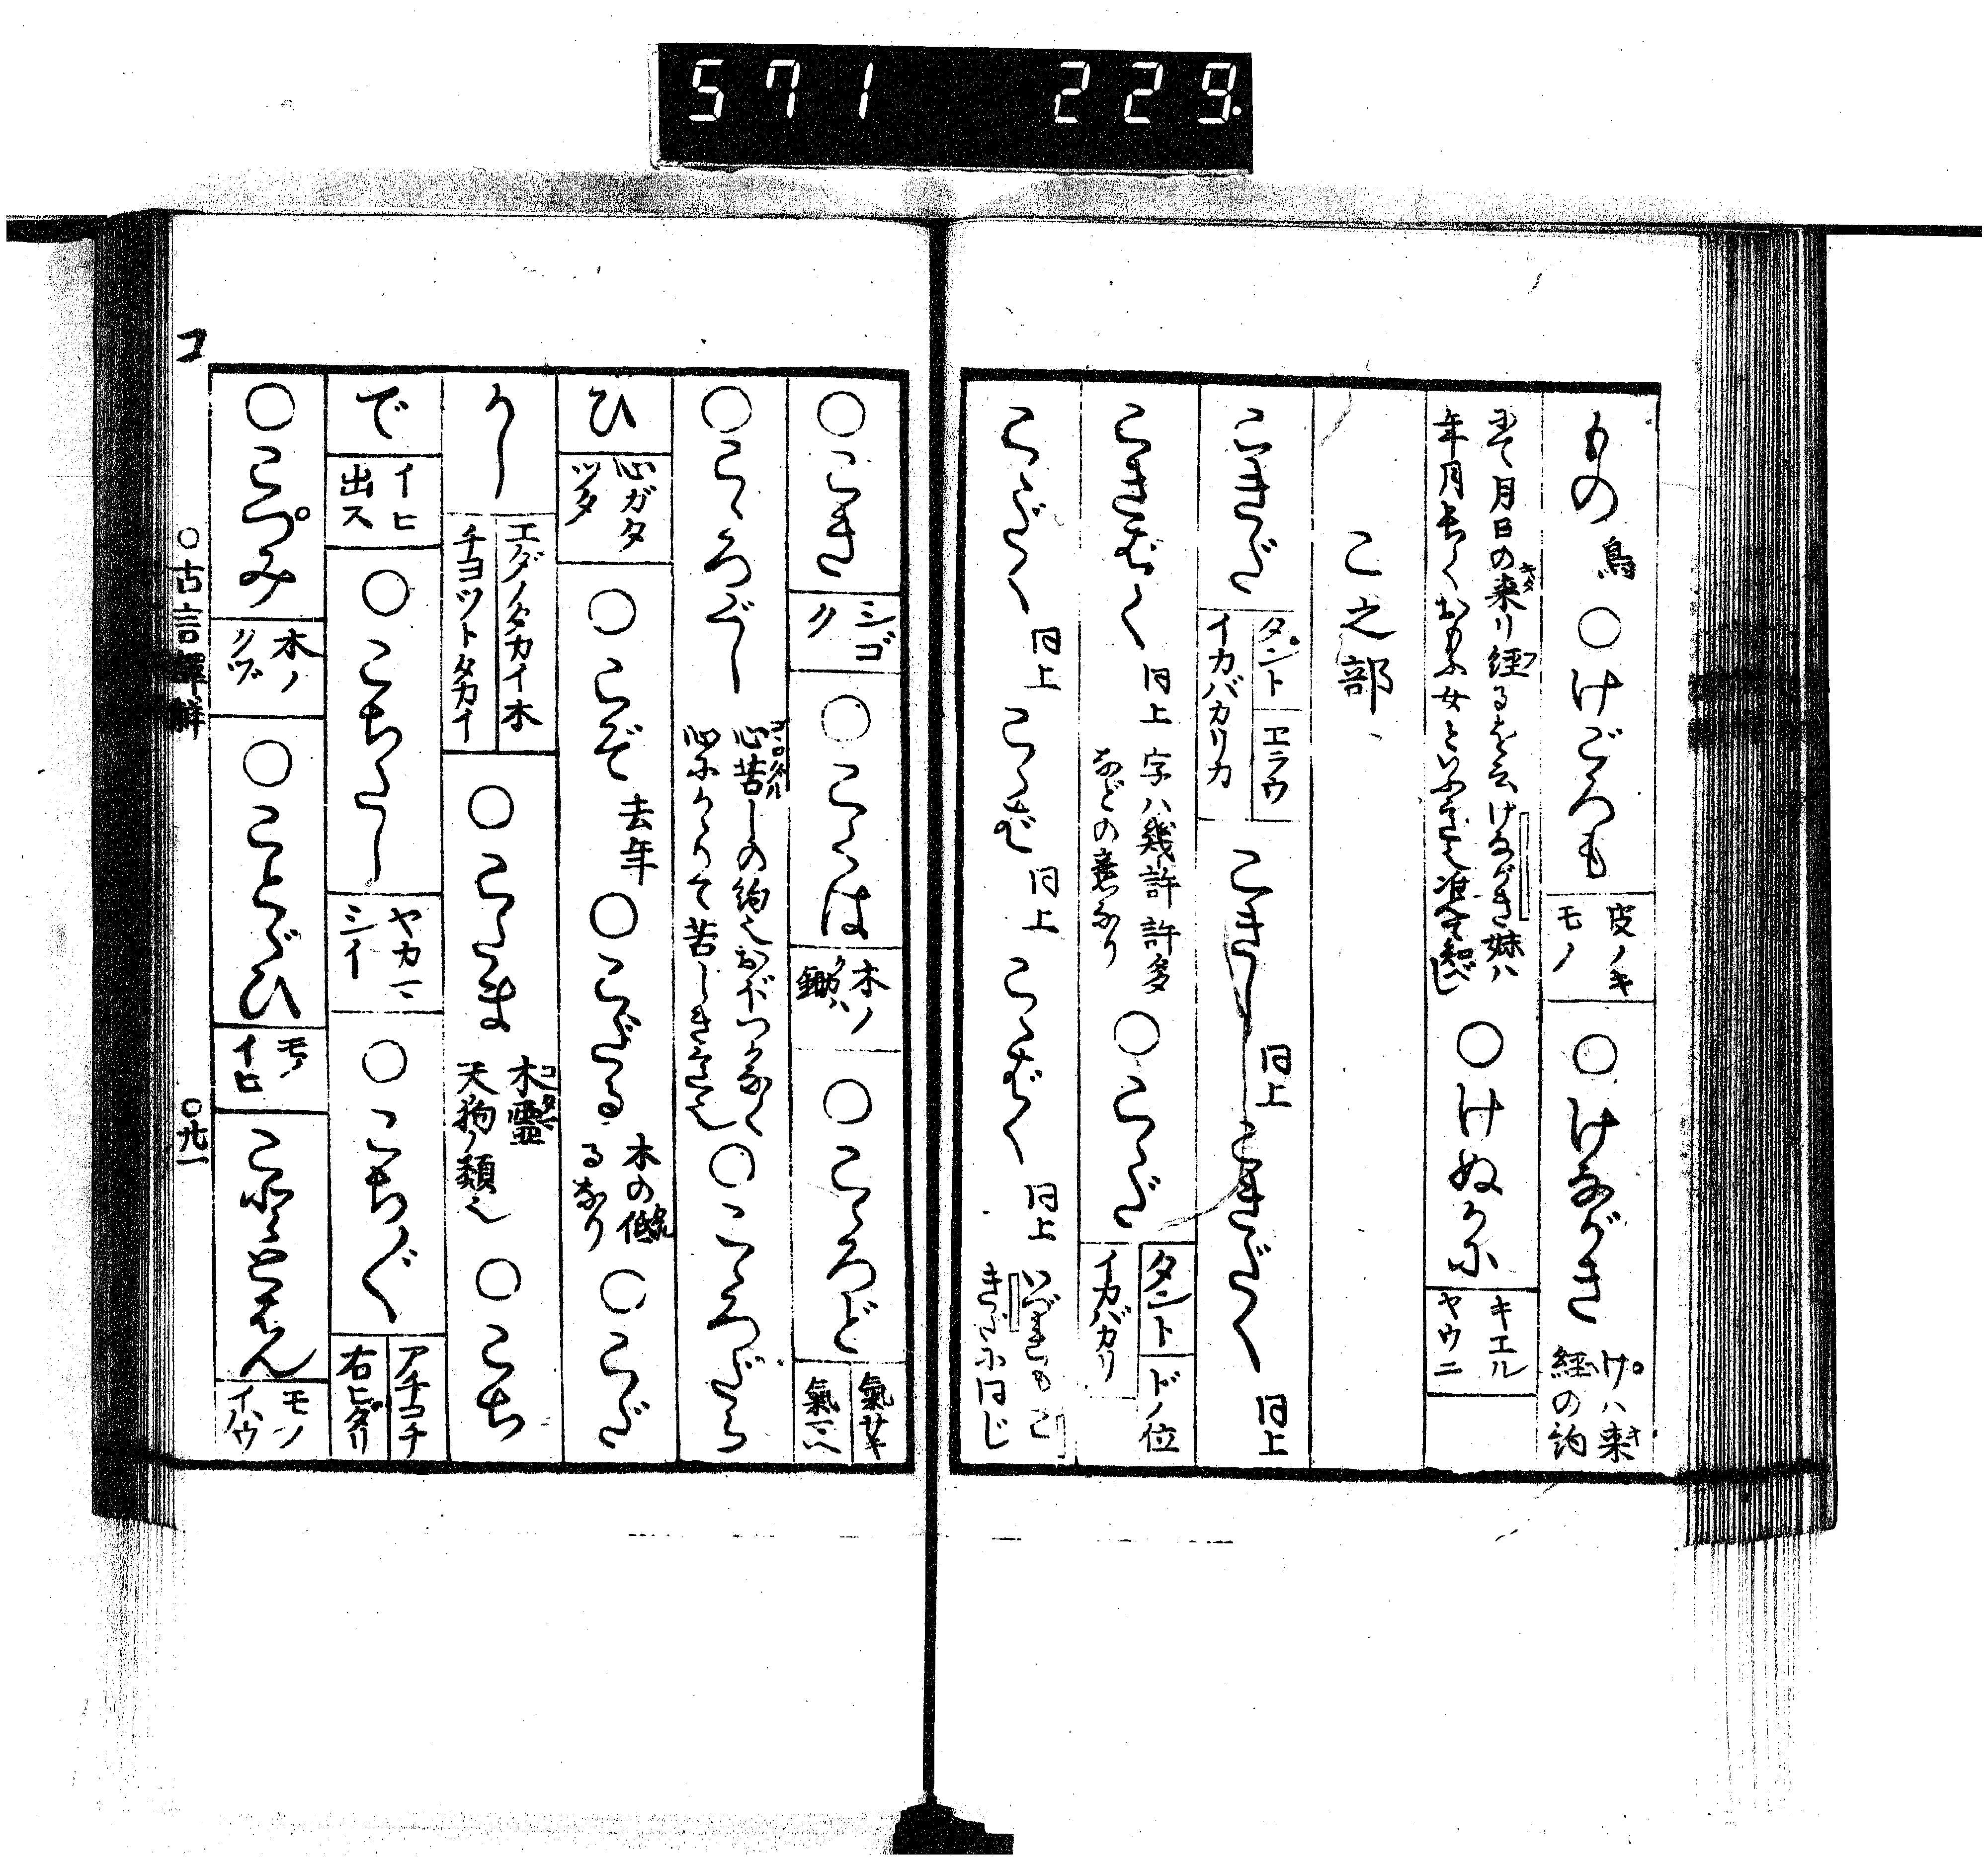 571 229.
もの 鳥 ○けごろも 皮ノキモノ ○けながき け゚ハ来経の約
にて月日の来り経るを云けながき妹ハ
年月長くおもふ女といふ意也准て知べし ○けぬかに キエルヤウニ
こ之部
こきだ タント エラウ イカバカリカ こきし 同上 こきだく 同上
こきばく 同上 字ハ幾許許多などの意なり ○こゝだ タント ドノ位 イカバカリ
こゝだく 同上 こゝば 同上 こゝばく 同上 いづれもこきだに同じ
○こき シゴク ○こくは 木ノ鋤 ○こゝろど
○こゝろぐし 心苦しの約也おぼつかなく心にかゝりて苦しき意也 ○こゝろだら
ひ 心ガタツタ ○こぞ 去年 ○こだる 木の低るなり ○こだ
かし エダノタカイ木 チヨツトタカイ ○こたま 木霊 天狗ノ類也 ○こち
で イヒ出ス ○こちたし ヤカマシイ ○こちゞく アチコチ 右ヒダリ
○こつ゚み 木ノクヅ ○ことゞひ モノイヒ ことゝはん モノイハウ
コ
○古言譯解 ○九一